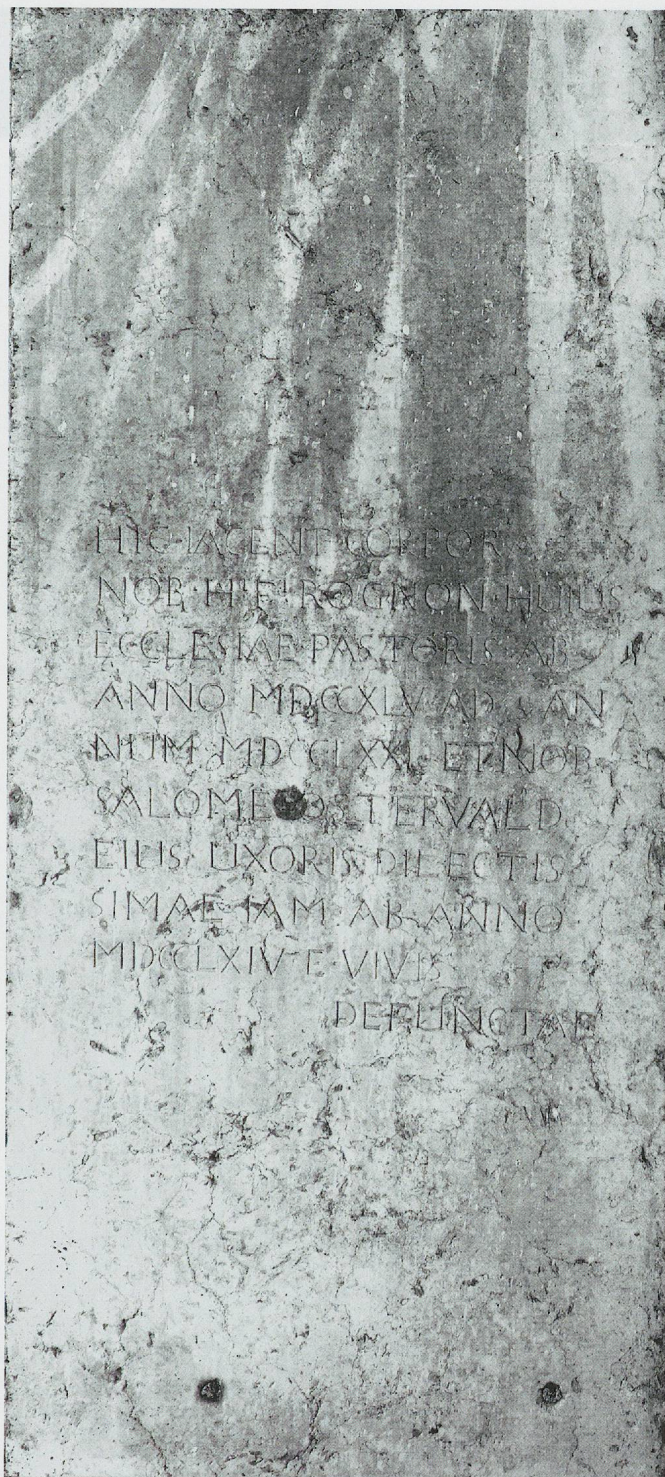 HIC·IACENT·CORPOR
NOB·H·F·ROGNON·HUIUS
ECCLESIAE·PASTORIS·AB
ANNO MDCCXLV AD AN
NUM MDCCLXXI ET NOB
SALOME OSTERVALD
EIUS UXORIS DILECTIS
SIMAE IAM AB ANNO
MDCCLXIV E VIVIS
DEFUNCTAE